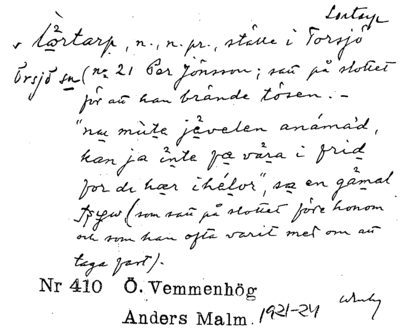 v lårtarp, n., n. pr., ställe i Torsjö
Örsjö sn (nr 21 Per Jönsson; satt på slottet
för att han brände tösen. –
"nu müte jävelen anámad,
kan ja inte fa våra i frid
for di hær ihélor", sa en gåmal
(som satt på slottet före honom
och som han ofta varit met om att
taga fast).
Nr 410 Ö. Vemmenhög
Anders Malm 1921-24